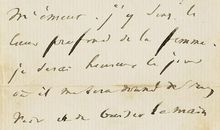 m'émeut. j'y sens le
cœur profond de la femme.
je serai heureux le jour
où il me sera donné de vous
voir et de baiser la main